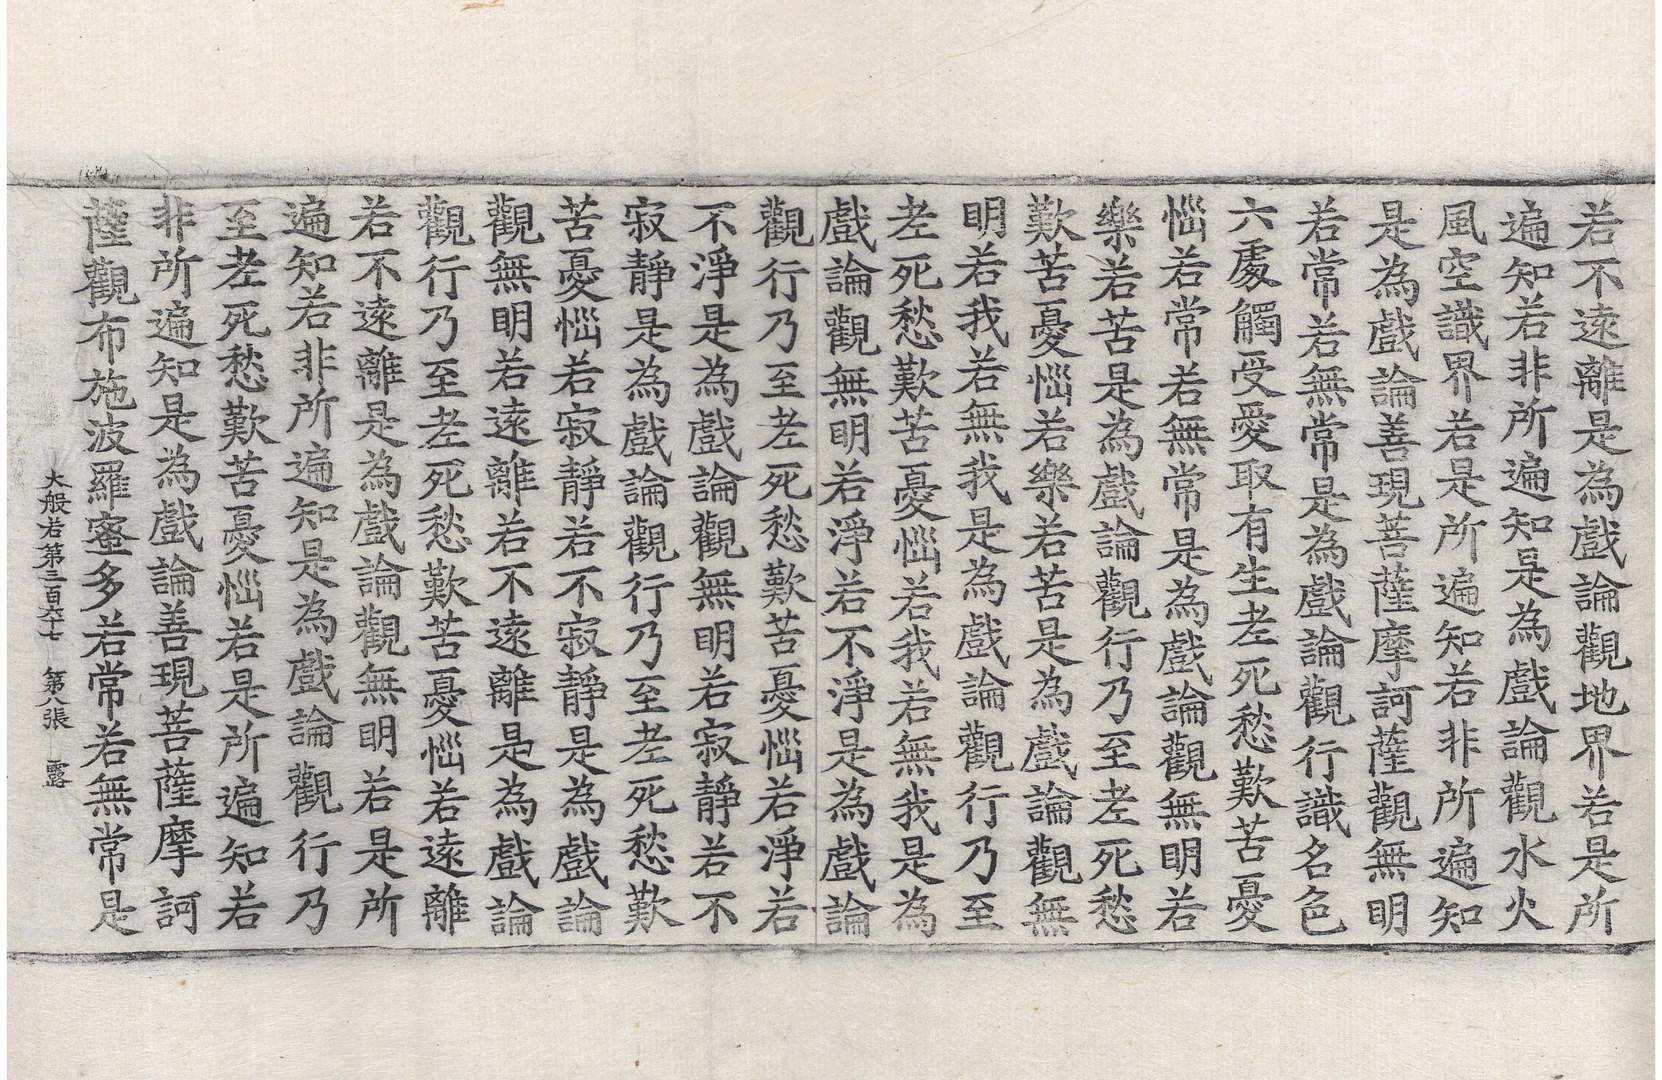 若不遠離是為戲論觀地界若是所
遍知若非所遍知是為戲論觀水火
風空識界若是所遍知若非所遍知
是為戲論善現菩薩摩訶薩觀無明
若常若無常是為戲論觀行識名色
六處觸受愛取有生老死愁歎苦憂
惱若常若無常是為戲論觀無明若
樂若苦是為戲論觀行乃至老死愁
歎苦憂惱若樂若苦是為戲論觀無
明若我若無我是為戲論觀行乃至
老死愁歎苦憂惱若我若無我是為
戲論觀無明若淨若不淨是為戲論
觀行乃至老死愁歎苦憂惱若淨若
不淨是為戲論觀無明若寂靜若不
寂靜是為戲論觀行乃至老死愁歎
苦憂惱若寂靜若不寂靜是為戲論
觀無明若遠離若不遠離是為戲論
觀行乃至老死愁歎苦憂惱若遠離
若不遠離是為戲論觀無明若是所
遍知若非所遍知是為戲論觀行乃
至老死愁歎苦憂惱若是所遍知若
非所遍知是為戲論善現菩薩摩訶
薩觀布施波羅蜜多若常若無常是
大般若第三百六十七 第八張 露